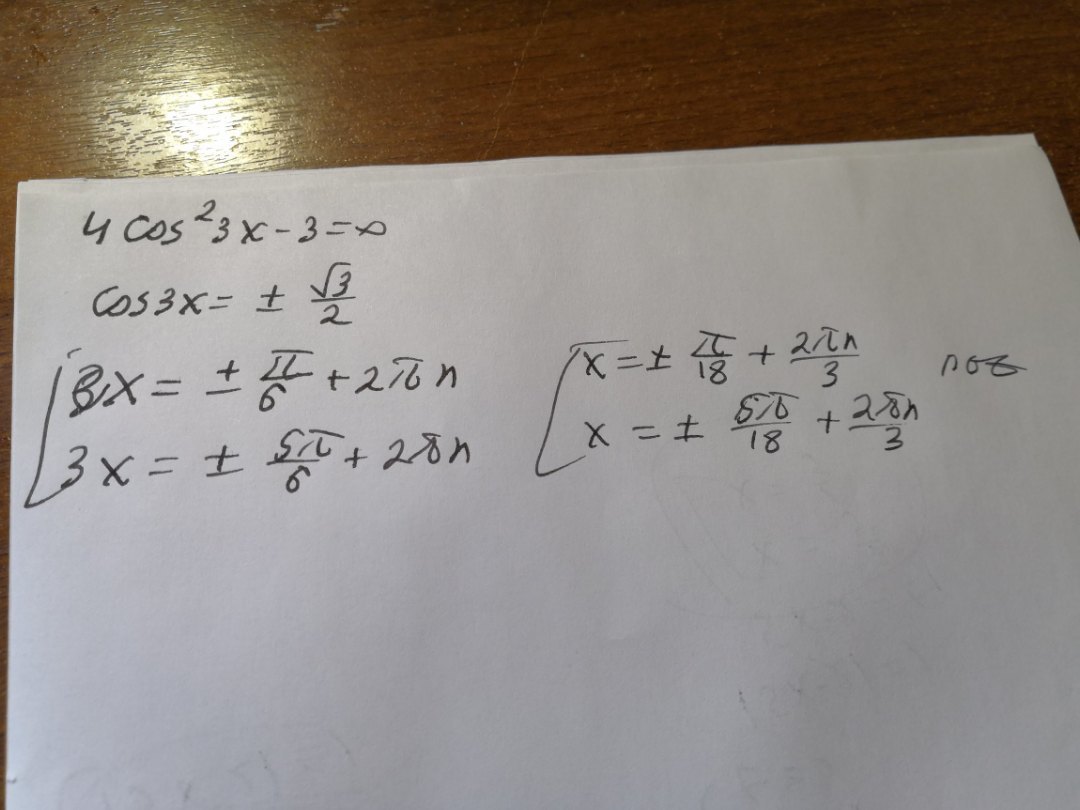 4 cos²3x - 3 = ∞
cos3x = ± √3/2
3x = ± π/6 + 2πn
3x = ± 5π/6 + 2πn
x = ± π/18 + 2πn/3
x = ± 5π/18 + 2πn/3